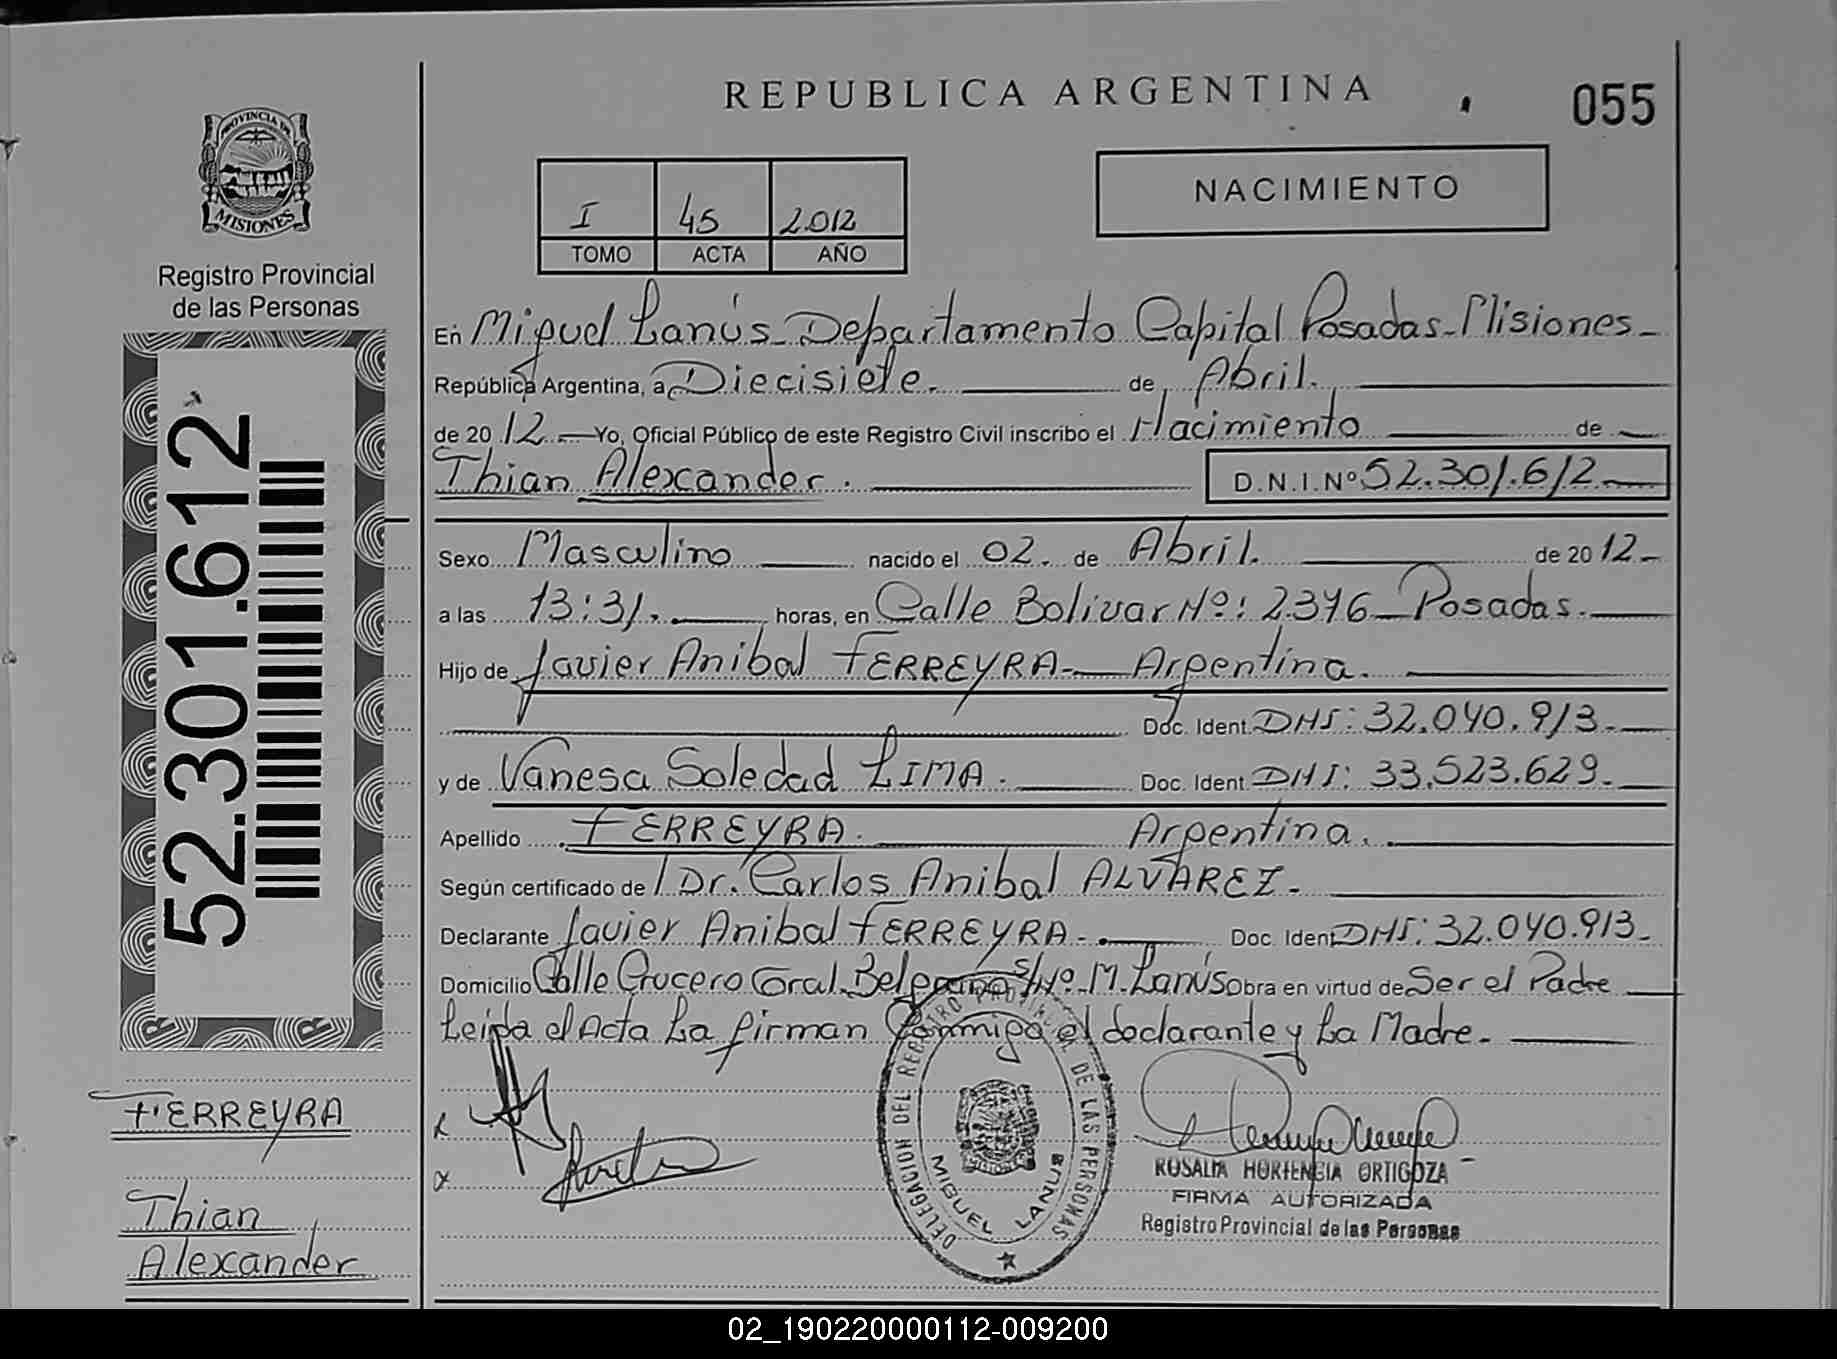 REPUBLICA ARGENTINA
055
PROVINCIA DE
MISIONES
Registro Provincial
de las Personas
I 45 2012
TOMO ACTA AÑO
NACIMIENTO
52.301.612
En Miguel Lanús - Departamento Capital Posadas - Misiones -
República Argentina, a Diecisiete. de Abril.
de 2012 - Yo, Oficial Público de este Registro Civil inscribo el Nacimiento de
Thian Alexander. D.N.I.Nº 52.301.612
Sexo Masculino nacido el 02. de Abril. de 2012 -
a las 13:31. horas, en Calle Bolivar Nº: 2376 - Posadas.
Hijo de Javier Anibal FERREYRA - Argentina.
Doc. Ident. DNI: 32.040.913 -
y de Vanesa Soledad LIMA. Doc. Ident. DNI: 33.523.629 -
Apellido FERREYRA. Argentina.
Según certificado de Dr. Carlos Anibal ALVAREZ -
Declarante Javier Anibal FERREYRA - Doc. Ident DNI: 32.040.913 -
Domicilio Calle Crucero Gral. Belgrano S/Nº M. Lanús Obra en virtud de Ser el Padre
Leida el Acta La firman Conmigo el declarante y La Madre -
FERREYRA
Thian
Alexander
DELEGACION DEL REGISTRO PROVINCIAL DE LAS PERSONAS
MIGUEL LANUS
ROSALIA HORTENSIA ORTIGOZA
FIRMA AUTORIZADA
Registro Provincial de las Personas
02_190220000112-009200